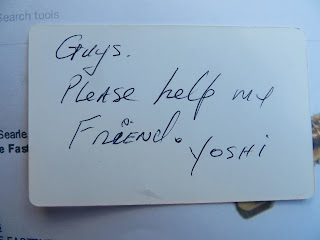 Search tools
Guys.
Please help my
Friend.
Yoshi
Searle
e Fast